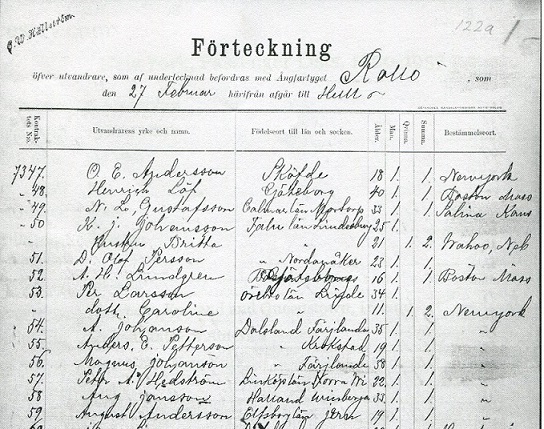 C. W. Hällström.
122a 1-
Förteckning
öfver utvandrare, som af undertecknad befordras med Ångfartyget Rollo, som
den 27 Februar härifrån afgår till Hull
Kontrakts No. Utvandrarens yrke och namn. Födelseort till län och socken. Ålder. Man. Qvinna. Summa. Bestämmelseort.
7347. O. E. Andersson Sköfde 18 1. 1. Newyork
" 48. Henrich Löf Göteborg 40 1. 1. Boston Mass
" 49. N. L. Gustafsson Calmar län 33 1. 1. Salina Kans
" 50 K. J. Johansson 25 1.
hustru Britta " 21 1. 2. Wahoo, Neb
51. D. Olof Persson " Nordanåker 23 1. 1. "
52. A. H. Lundgren 16 1. 1. Boston Mass
53. Per Larsson Örebro län 34 1.
dott. Caroline " 11. 1. 2. Newyork
54. A. Johanson Dalsland Färjlanda 35 1. 1. "
55. Anders. E. Petterson " Krokstad 19 1. 1. "
56. Magnus Johanson " Färjlanda 58 1. 1. "
57. Pettr A. Hedström Linköpslän Norra Wi 22. 1. 1. "
58 Aug Jansson Halland 33. 1. 1. "
59. August Andersson Elfsborglän 19 1. 1. "